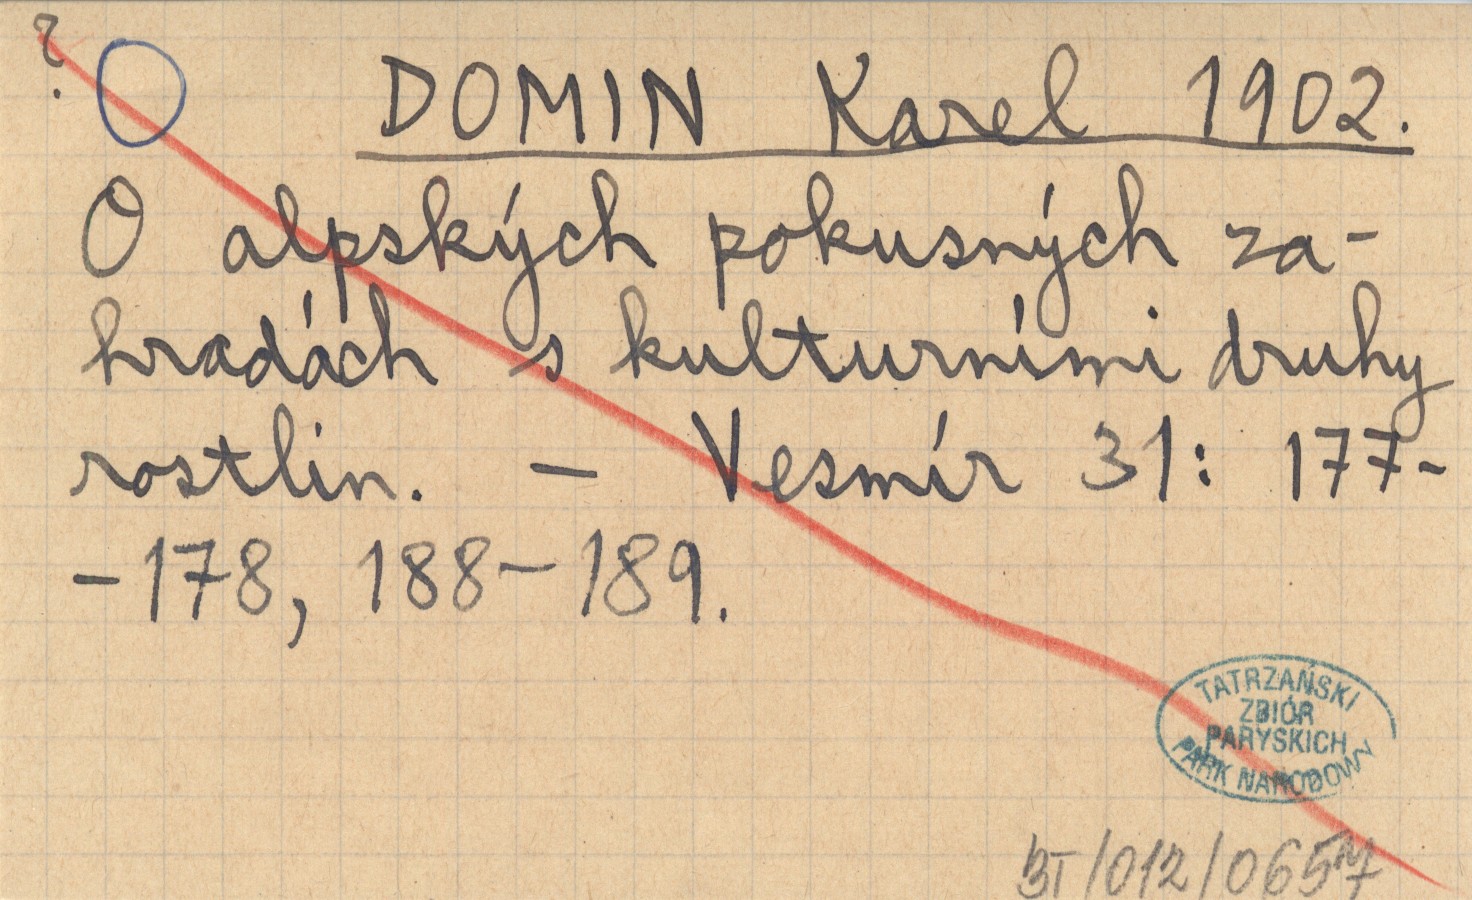 ?
DOMIN Karel 1902.
O alpských pokusných za-
hradách s kulturními druhy
rostlin. — Vesmír 31: 177-
-178, 188-189.
TATRZAŃSKI
ZBIÓR
PARYSKICH
PARK NARODOWY
BT/012/0657